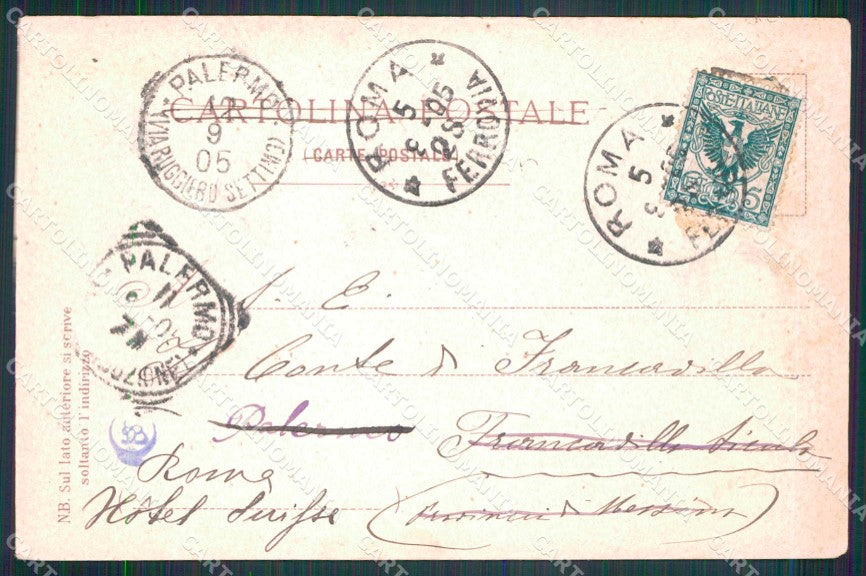 PALERMO
12
9
05
(VIA RUGGIERO SETTIMO)
ROMA
5
FERROVIA
CARTOLINA POSTALE
(CARTE POSTALE)
POSTE ITALIANE
5
ROMA
5
PALERMO
11
S. E.
Conte di Francavilla
Palermo Francavilla Sicula
Roma
Hôtel Suisse (Provincia di Messina)
N.B. Sul lato anteriore si scrive
soltanto l'indirizzo
CARTOLINOMANIA